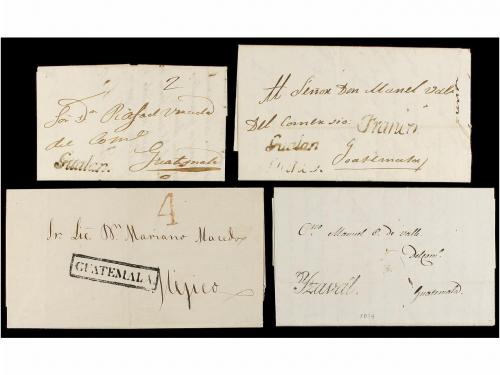 2
Sor Dn Rafael
de Com.o
Gualan.
Guatemala
Al Señor Don Manel Valle
Del Comersio
Franco
Gualan
Goatemala
4
Sr. Lic. Dn. Mariano Macedo
GUATEMALA
Mejico
C.no Manuel F. de Valle.
Del com.o
Yzaval.
Guatemala.